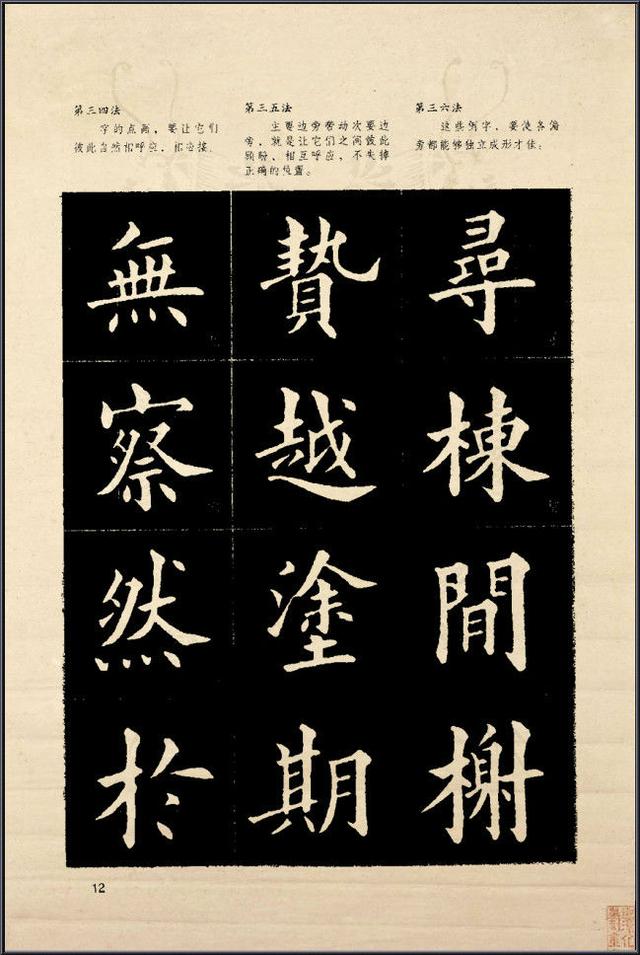 第三四法
字的点画，要让它们
彼此自然相呼应，相连接。
第三五法
主要边旁带动次要边
旁，就是让它们之间彼此
顾盼、相互呼应，不失掉
正确的位置。
第三六法
这些例字，要使各偏
旁都能够独立成形才佳。
無 贄 尋
察 越 棟
然 塗 間
於 期 榭
12